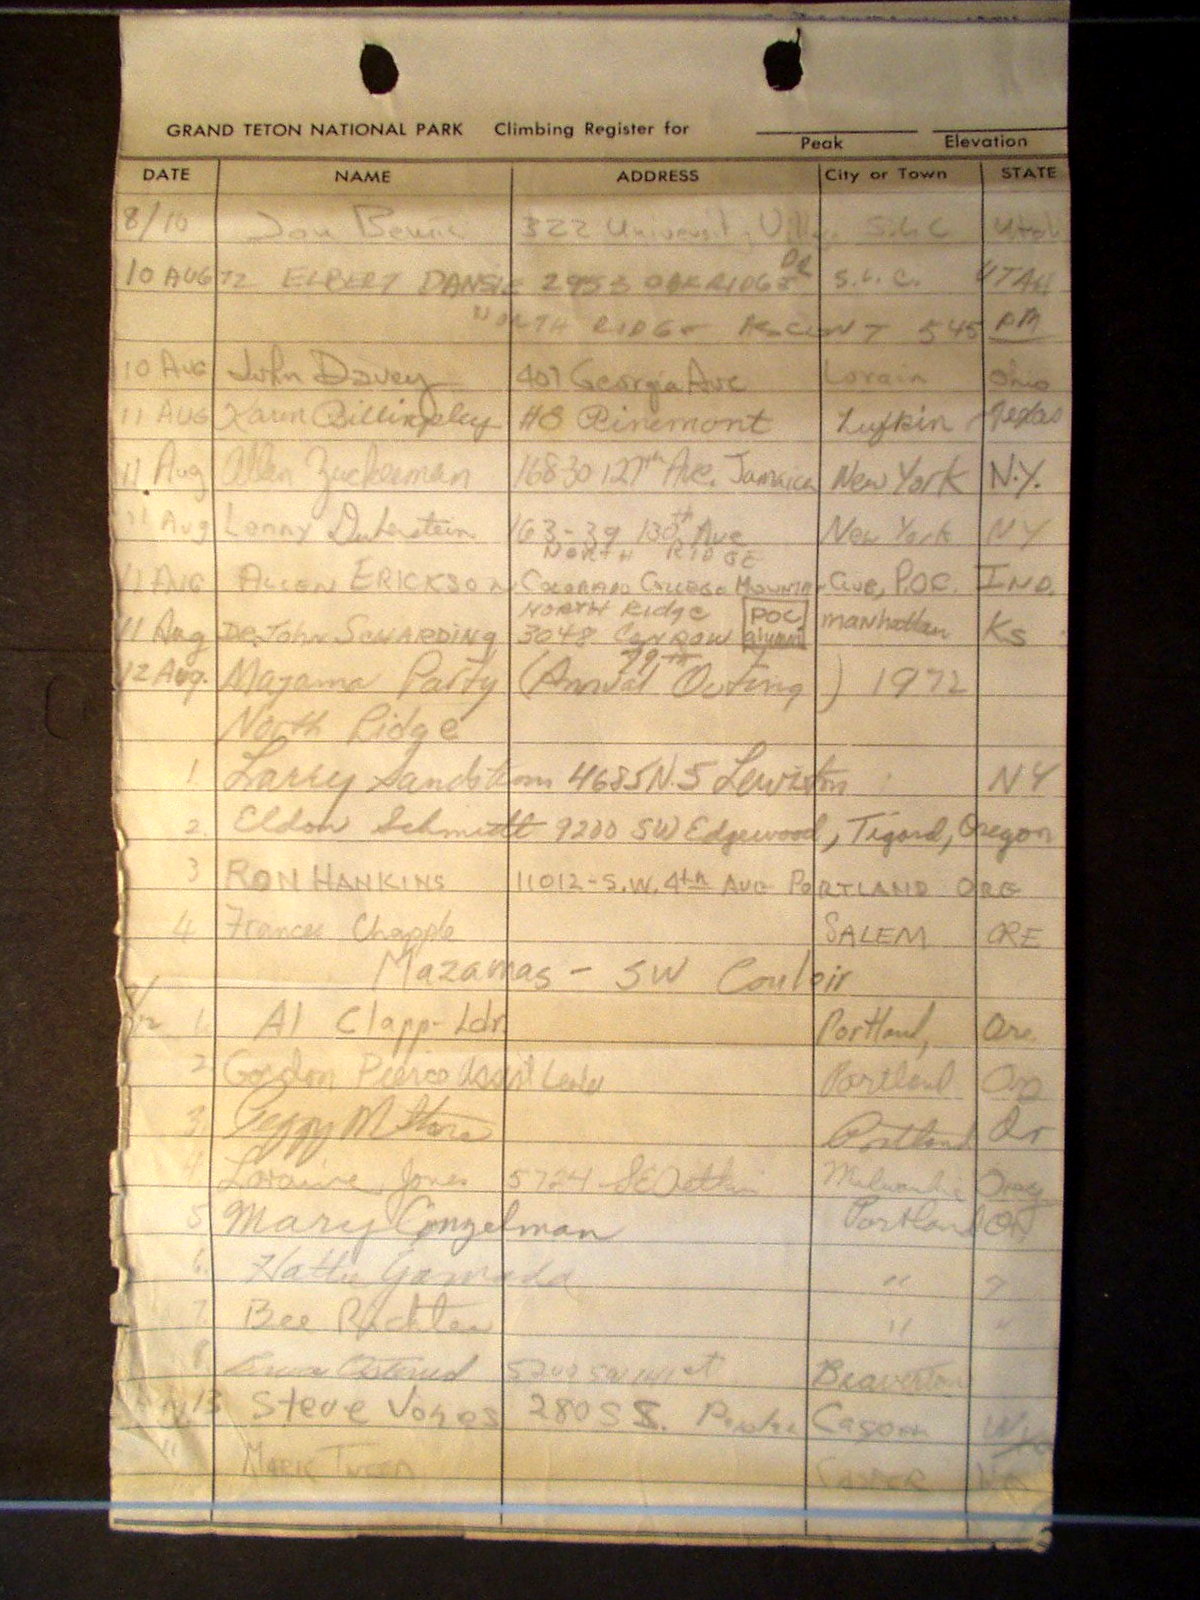 GRAND TETON NATIONAL PARK Climbing Register for Peak Elevation
DATE NAME ADDRESS City or Town STATE
8/10 322 University S.L.C Utah
10 AUG 72 ELBERT DANSIE 2953 OAKRIDGE DR S.L.C. UTAH
NORTH RIDGE ASCENT 545 PM
10 Aug John Davey 407 Georgia Ave Lorain Ohio
11 AUG Karen Billingsley #8 Pinemont Lufkin Texas
11 Aug Allen Zuckerman 16830 127th Ave. Jamaica New York N.Y.
11 Aug Lenny 163-39 130th Ave New York NY
NORTH RIDGE
11 AUG ALLEN ERICKSON COLORADO COLLEGE MOUNTAIN CLUB, P.O.C. IND.
NORTH Ridge POC alumni
11 Aug DR. JOHN 3048 manhattan Ks
12 Aug. Mazama Party (79th Annual Outing) 1972
North Ridge
1. Larry Sandstrom 4685 N.S Lewiston NY
2. Eldon Schmidt 9200 SW Edgewood, Tigard, Oregon
3 RON HANKINS 11012-S.W. 4th AVE PORTLAND ORE
4 Frances Chapple SALEM ORE
Mazamas - SW Couloir
1. Al Clapp-Ldr. Portland, Ore.
2 Gordon Pierce Asst Leader Portland
3. Peggy Portland Or
4. Loraine Jones 5724 SE Milwaukie Oreg
5 Mary Conzelman Portland OR
6. " "
7. Bee " "
8 Beaverton
13 Steve 280 S S.
" MARK CASPER